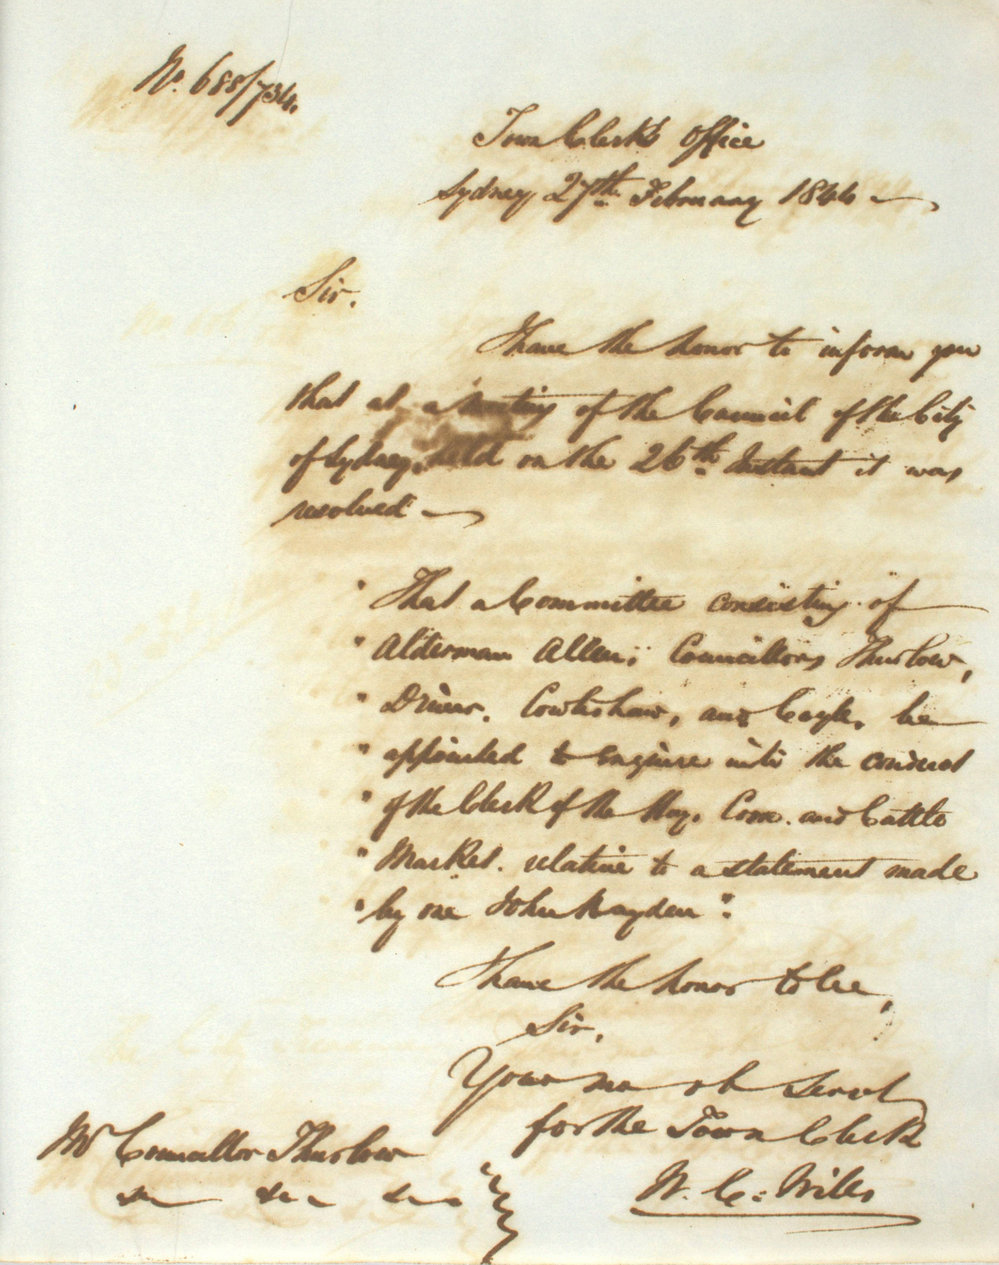 No. 688/734.
Town Clerk's Office
Sydney 27th February 1844
Sir.
I have the honor to inform you
that at a Meeting of the Council of the City
of Sydney, held on the 26th Instant it was
resolved
" That a Committee consisting of
" Alderman Allen; Councillors Thurlow,
" Driver, Cowlishaw, and Coyle, be
" appointed to enquire into the conduct
" of the Clerk of the Hay, Corn. and Cattle
" Market. relative to a statement made
" by one John Hayden ".
I have the honor to be,
Sir,
Your mo ob Servt
for the Town Clerk
W. C. Wills
Mr Councillor Thurlow